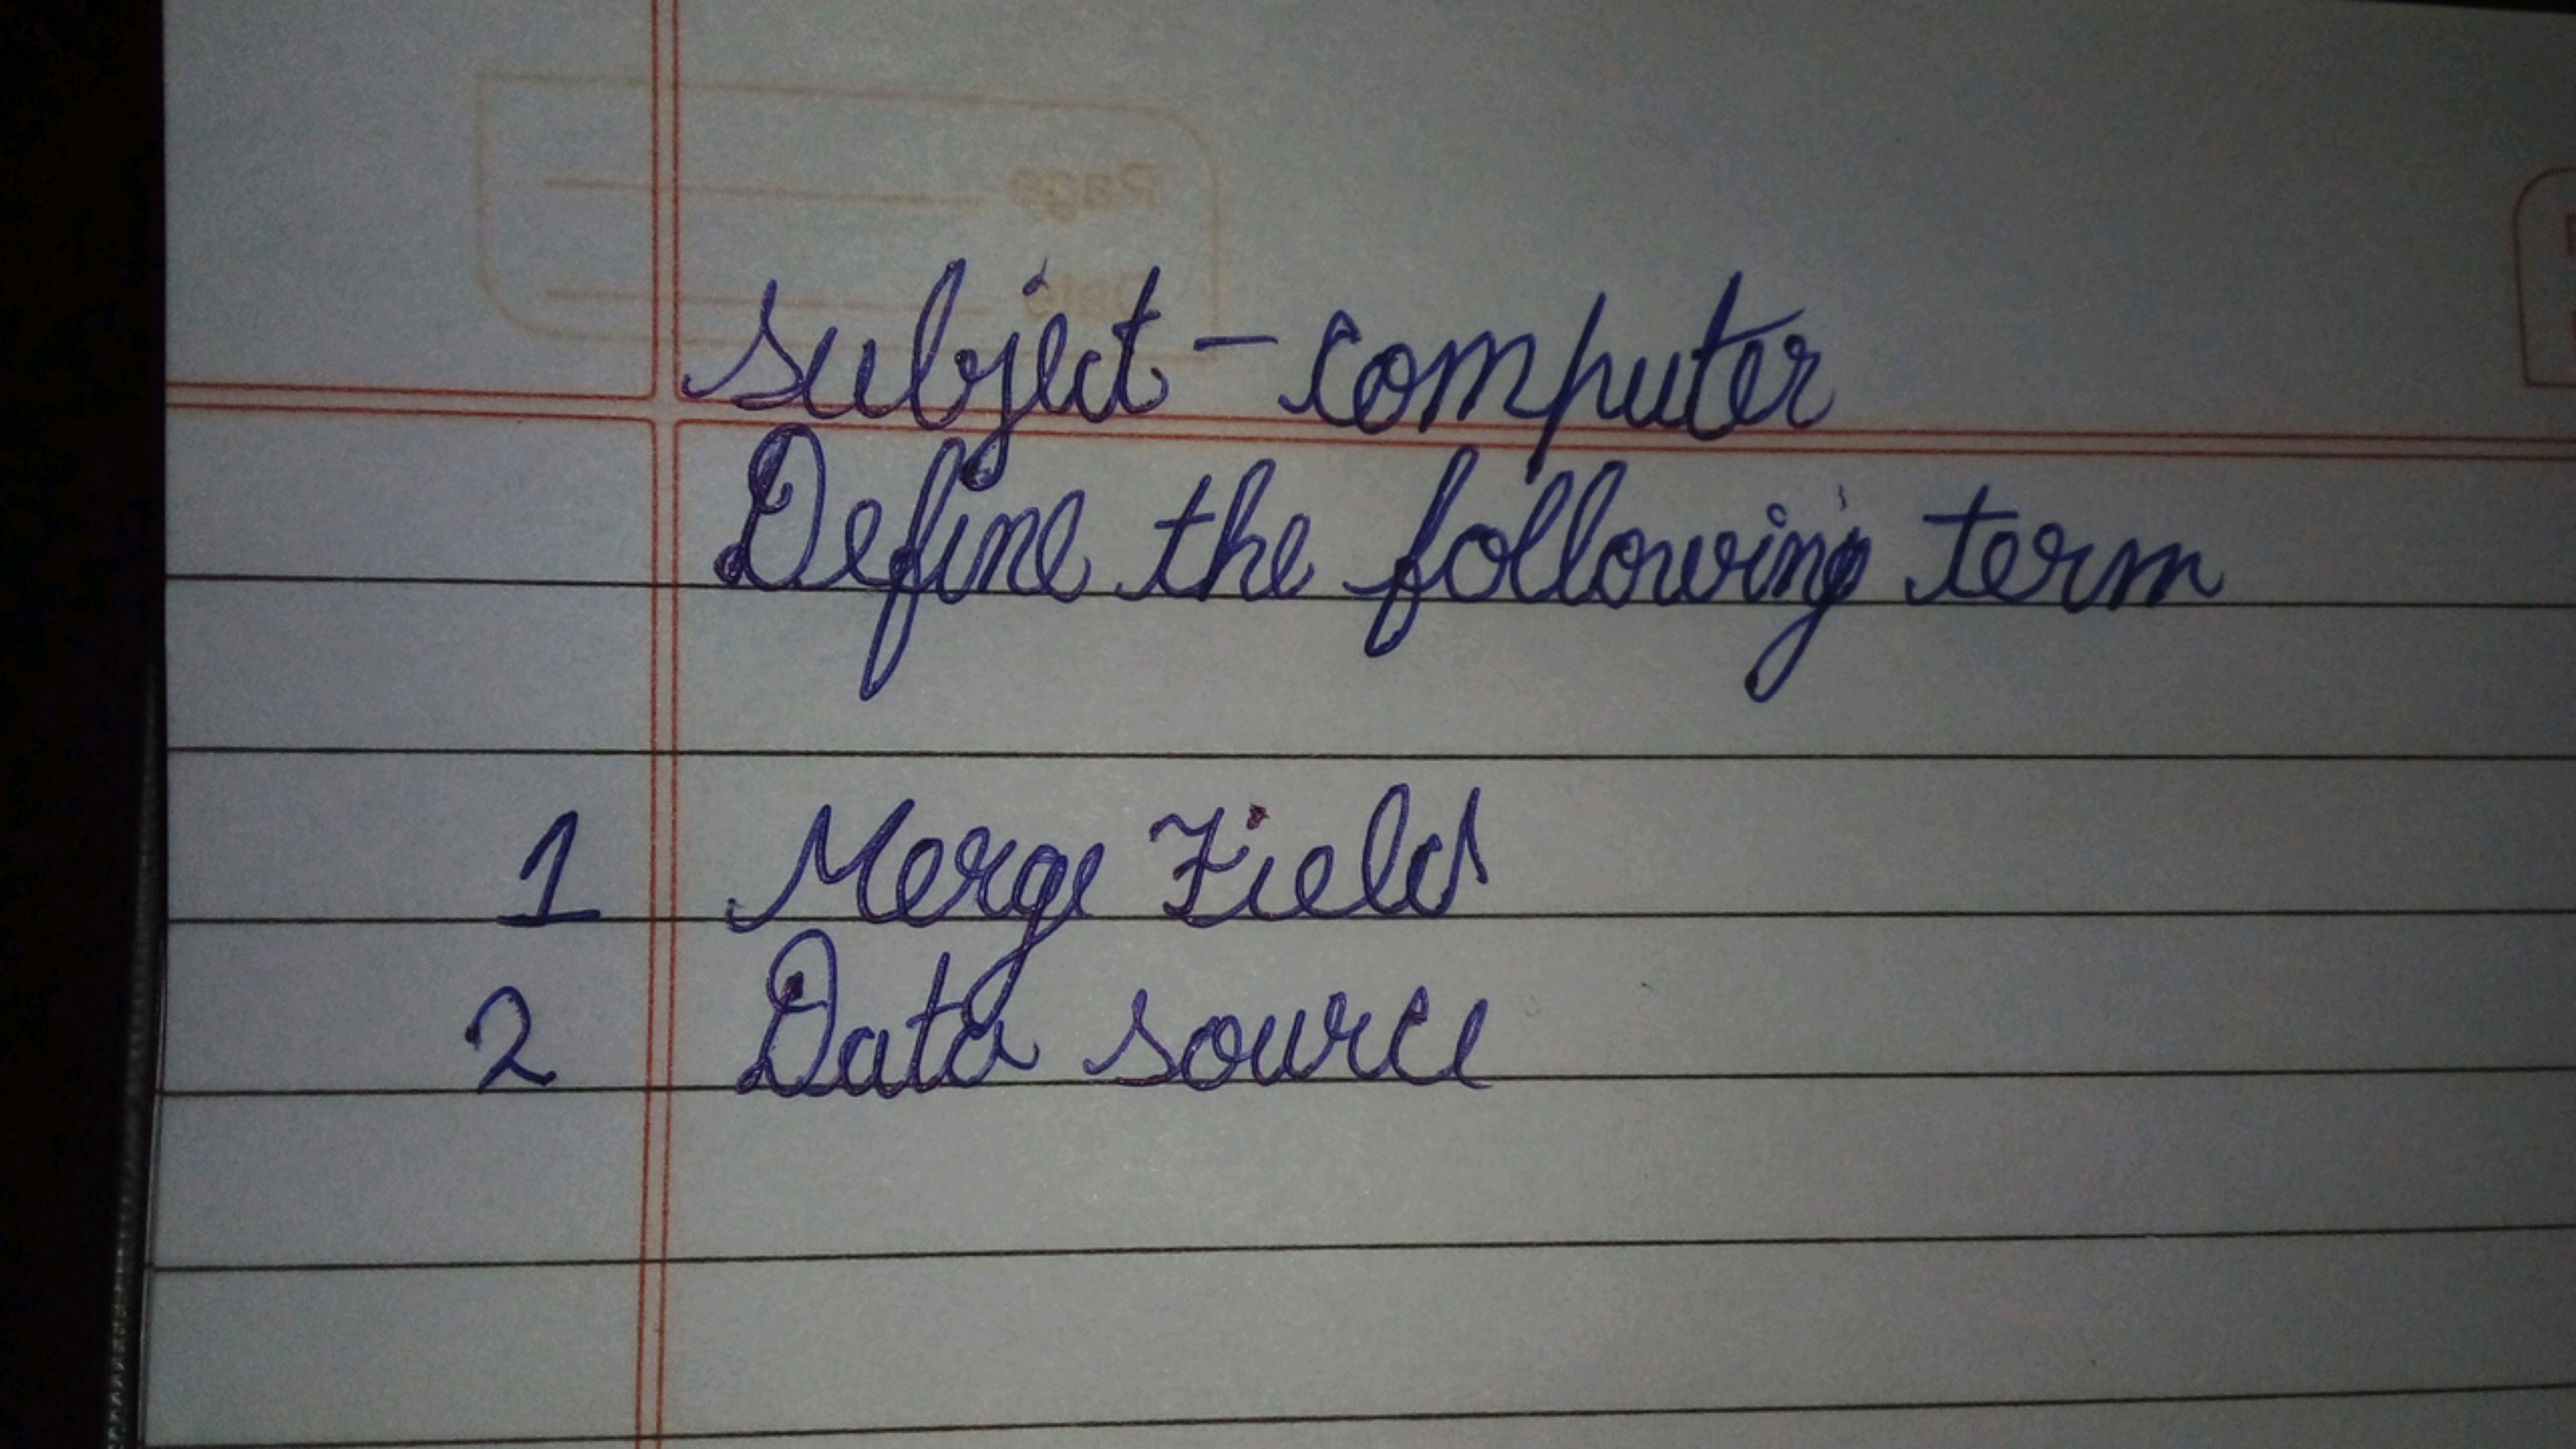 Page
Date
subject - computer
Define the following term
1 Merge Field
2 Data source